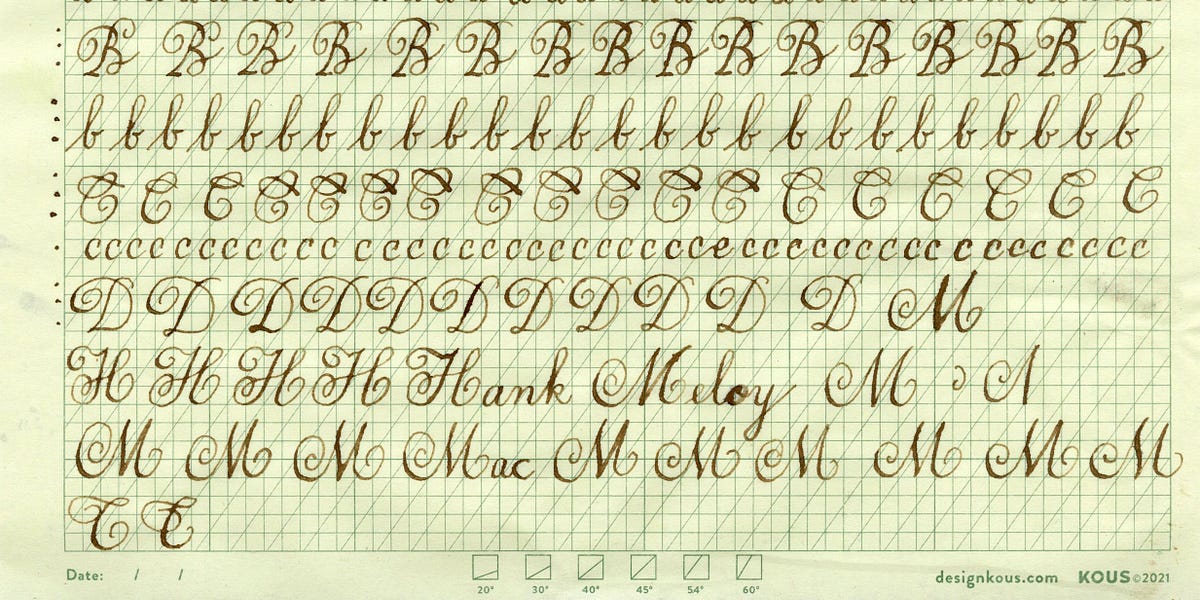 B B B B B B B B B B B B B B B B
b b b b b b b b b b b b b b b b b b b b b b b b b b
C C C C C C C C C C C C C C C C C C
c c c c c c c c c c c c c c c c c c c c c c c c c c c c c c c c c c c c c c c c c c c c
D D D D D D D D D D D M
H H H H Hank Meloy M
M M M Mac M M M M M M
Date: / / 20° 30° 40° 45° 54° 60° designkous.com KOUS ©2021